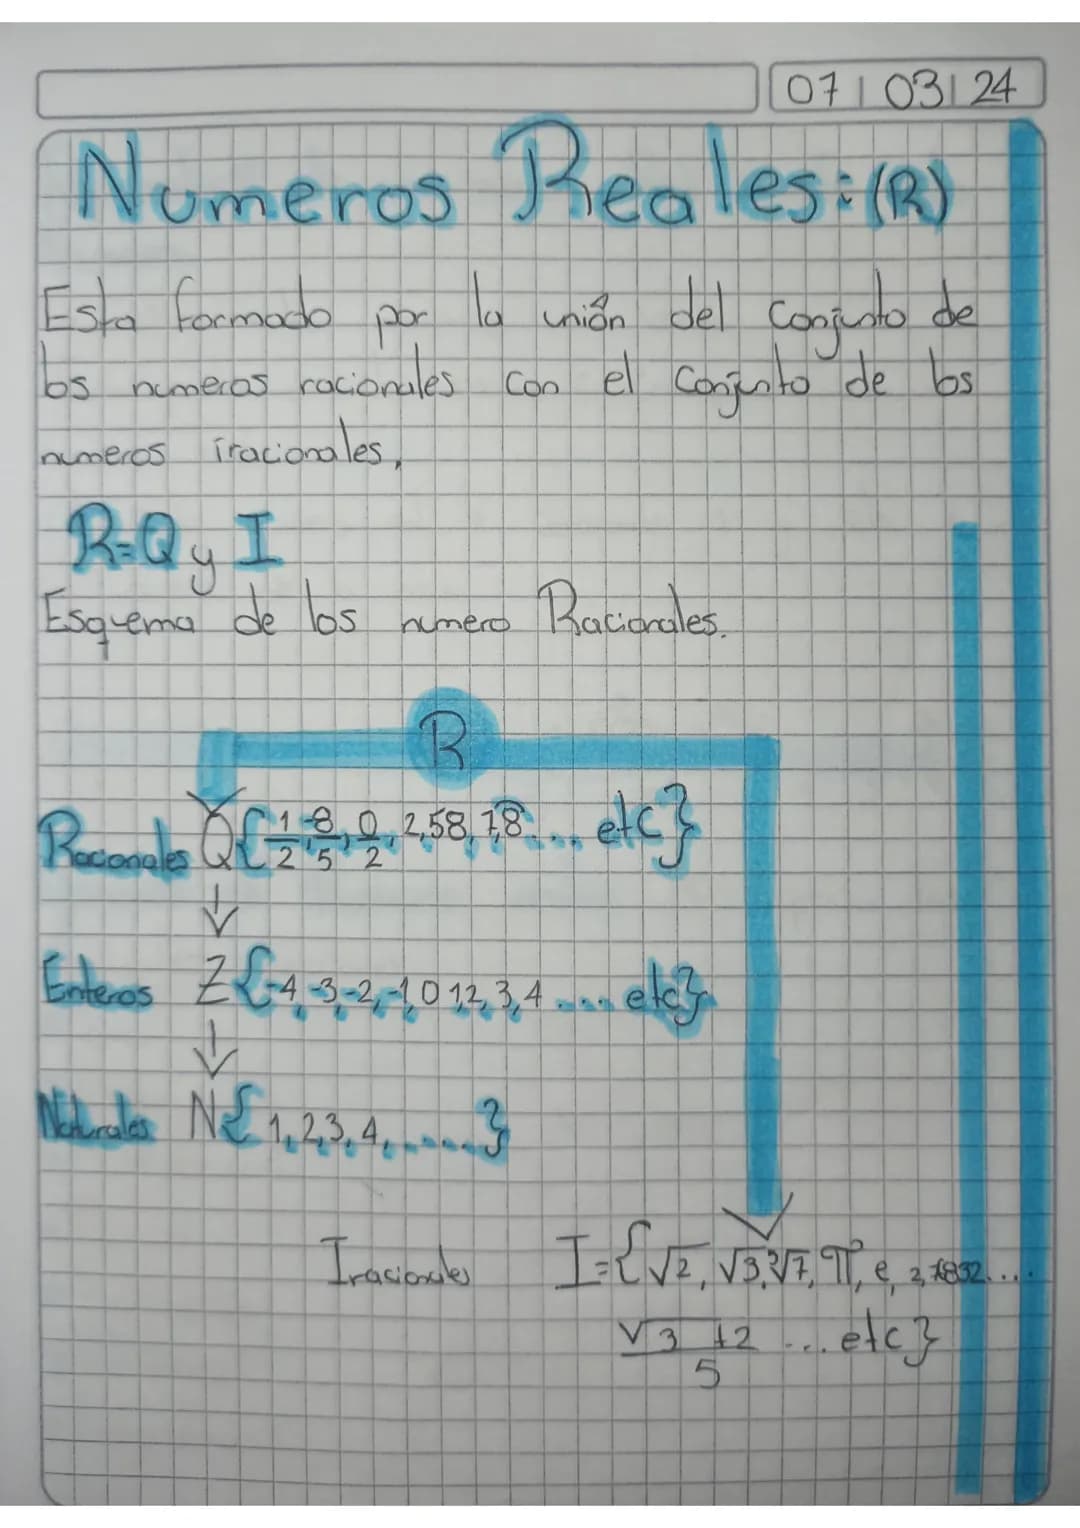 07 | 03 | 24
Numeros Reales: (R)
Esta formado por la unión del conjunto de
los numeros racionales con el conjunto de los
numeros iracionales,
R=Q y I
Esquema de los numero Racionales.
R
Racionales Q{1/2, -8/5, 0/2, 2,58, 7,8... etc}
Enteros Z{-4,-3,-2,-1,0 1,2,3,4 .... etc}
Naturales N{1,2,3,4, .....}
Iracionales I={√2, √3, ∛7, π, e, 2,7832....
√3 +2 / 5 ... etc}